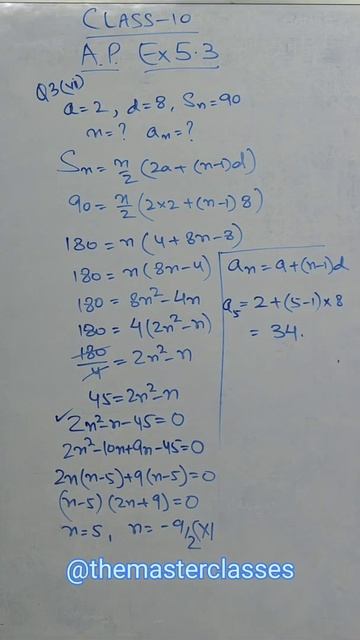 CLASS-10
A.P. Ex 5.3
Q3(vi)
a=2, d=8, Sn=90
n=? an=?
Sn = n/2 (2a+(n-1)d)
90 = n/2 (2×2+(n-1)8)
180 = n(4+8n-8)
180 = n(8n-4)
180 = 8n²-4n
180 = 4(2n²-n)
180/4 = 2n²-n
45 = 2n²-n
✓2n²-n-45=0
2n²-10n+9n-45=0
2n(n-5)+9(n-5)=0
(n-5)(2n+9)=0
n=5, n=-9/2(X)
an = a+(n-1)d
a5 = 2+(5-1)×8
= 34.
@themasterclasses